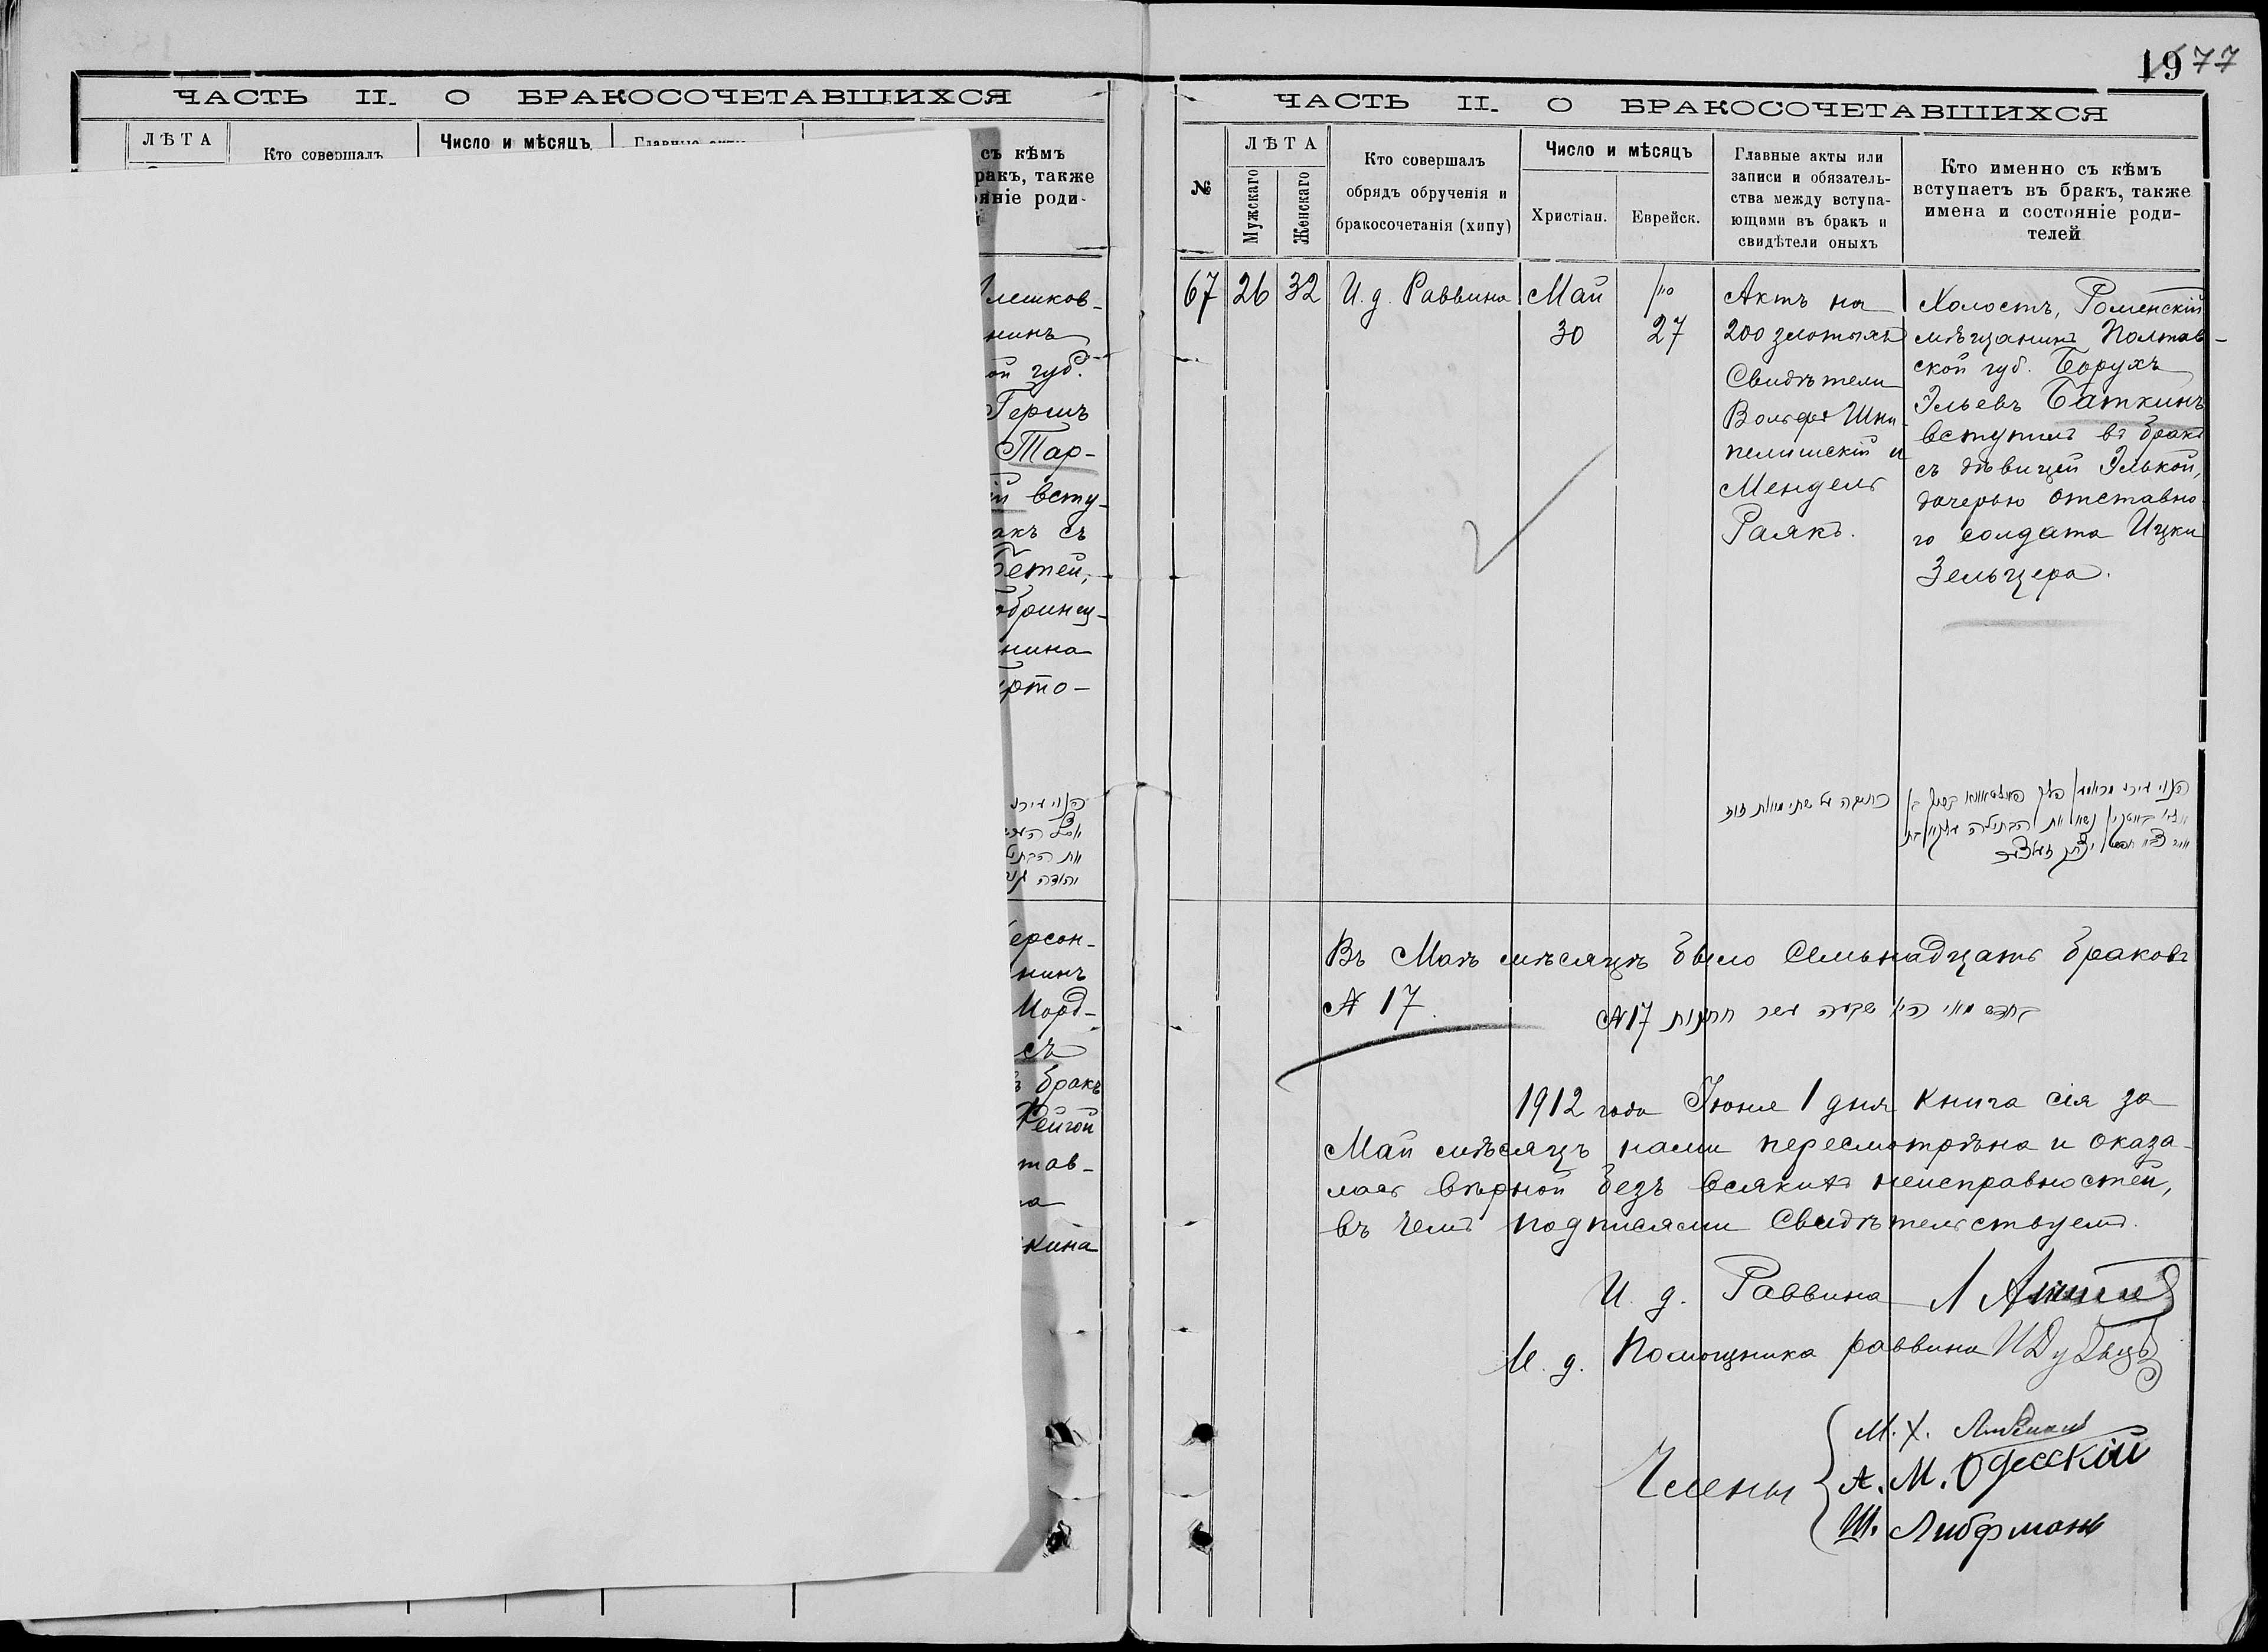 ЧАСТЬ II. О БРАКОСОЧЕТАВШИХСЯ
ЛѢТА
Кто совершалъ
Число и мѣсяцъ
съ кѣмъ
ракъ, также
яніе роди-
лешков-
нинъ
ой губ.
Гершъ
Тар-
й всту-
акъ съ
Бетей,
обринец-
нина
рто-
ерсон-
нинъ
Морд-
съ
ъ бракъ
Фейгой
тав-
на
кина
1977
ЧАСТЬ II. О БРАКОСОЧЕТАВШИХСЯ
№
ЛѢТА
Мужскаго
Женскаго
Кто совершалъ
обрядъ обрученія и
бракосочетанія (хипу)
Число и мѣсяцъ
Христіан.
Еврейск.
Главные акты или
записи и обязатель-
ства между вступа-
ющими въ бракъ и
свидѣтели оныхъ
Кто именно съ кѣмъ
вступаетъ въ бракъ, также
имена и состояніе роди-
телей
67 26 32 И. д. Раввина
Май
30
סיון
27
Актъ на
200 злотыхъ
Свидѣтели
Вольфъ Шни-
пелишскій и
Мендель
Раякъ.
Холостъ, Роменскій
мѣщанинъ Полтав-
ской губ. Борухъ
Эльевъ Баткинъ
вступилъ въ бракъ
съ дѣвицей Элькой,
дочерью отставно-
го солдата Ицки
Зельцера.
כתובה על שתי מאות זוז
Въ Маѣ мѣсяцѣ было семьнадцать браковъ
№ 17.
בחדש מאי היו שבעה עשר חתונות №17
1912 года Іюня 1 дня книга сія за
Май мѣсяцъ нами пересмотрѣна и оказа-
лась вѣрной безъ всякихъ неисправностей,
въ чемъ подписями свидѣтельствуемъ.
И. д. Раввина
И. д. Помощника раввина
Члены
М. Х.
А. М. Одесскій
Ш. Либфманъ